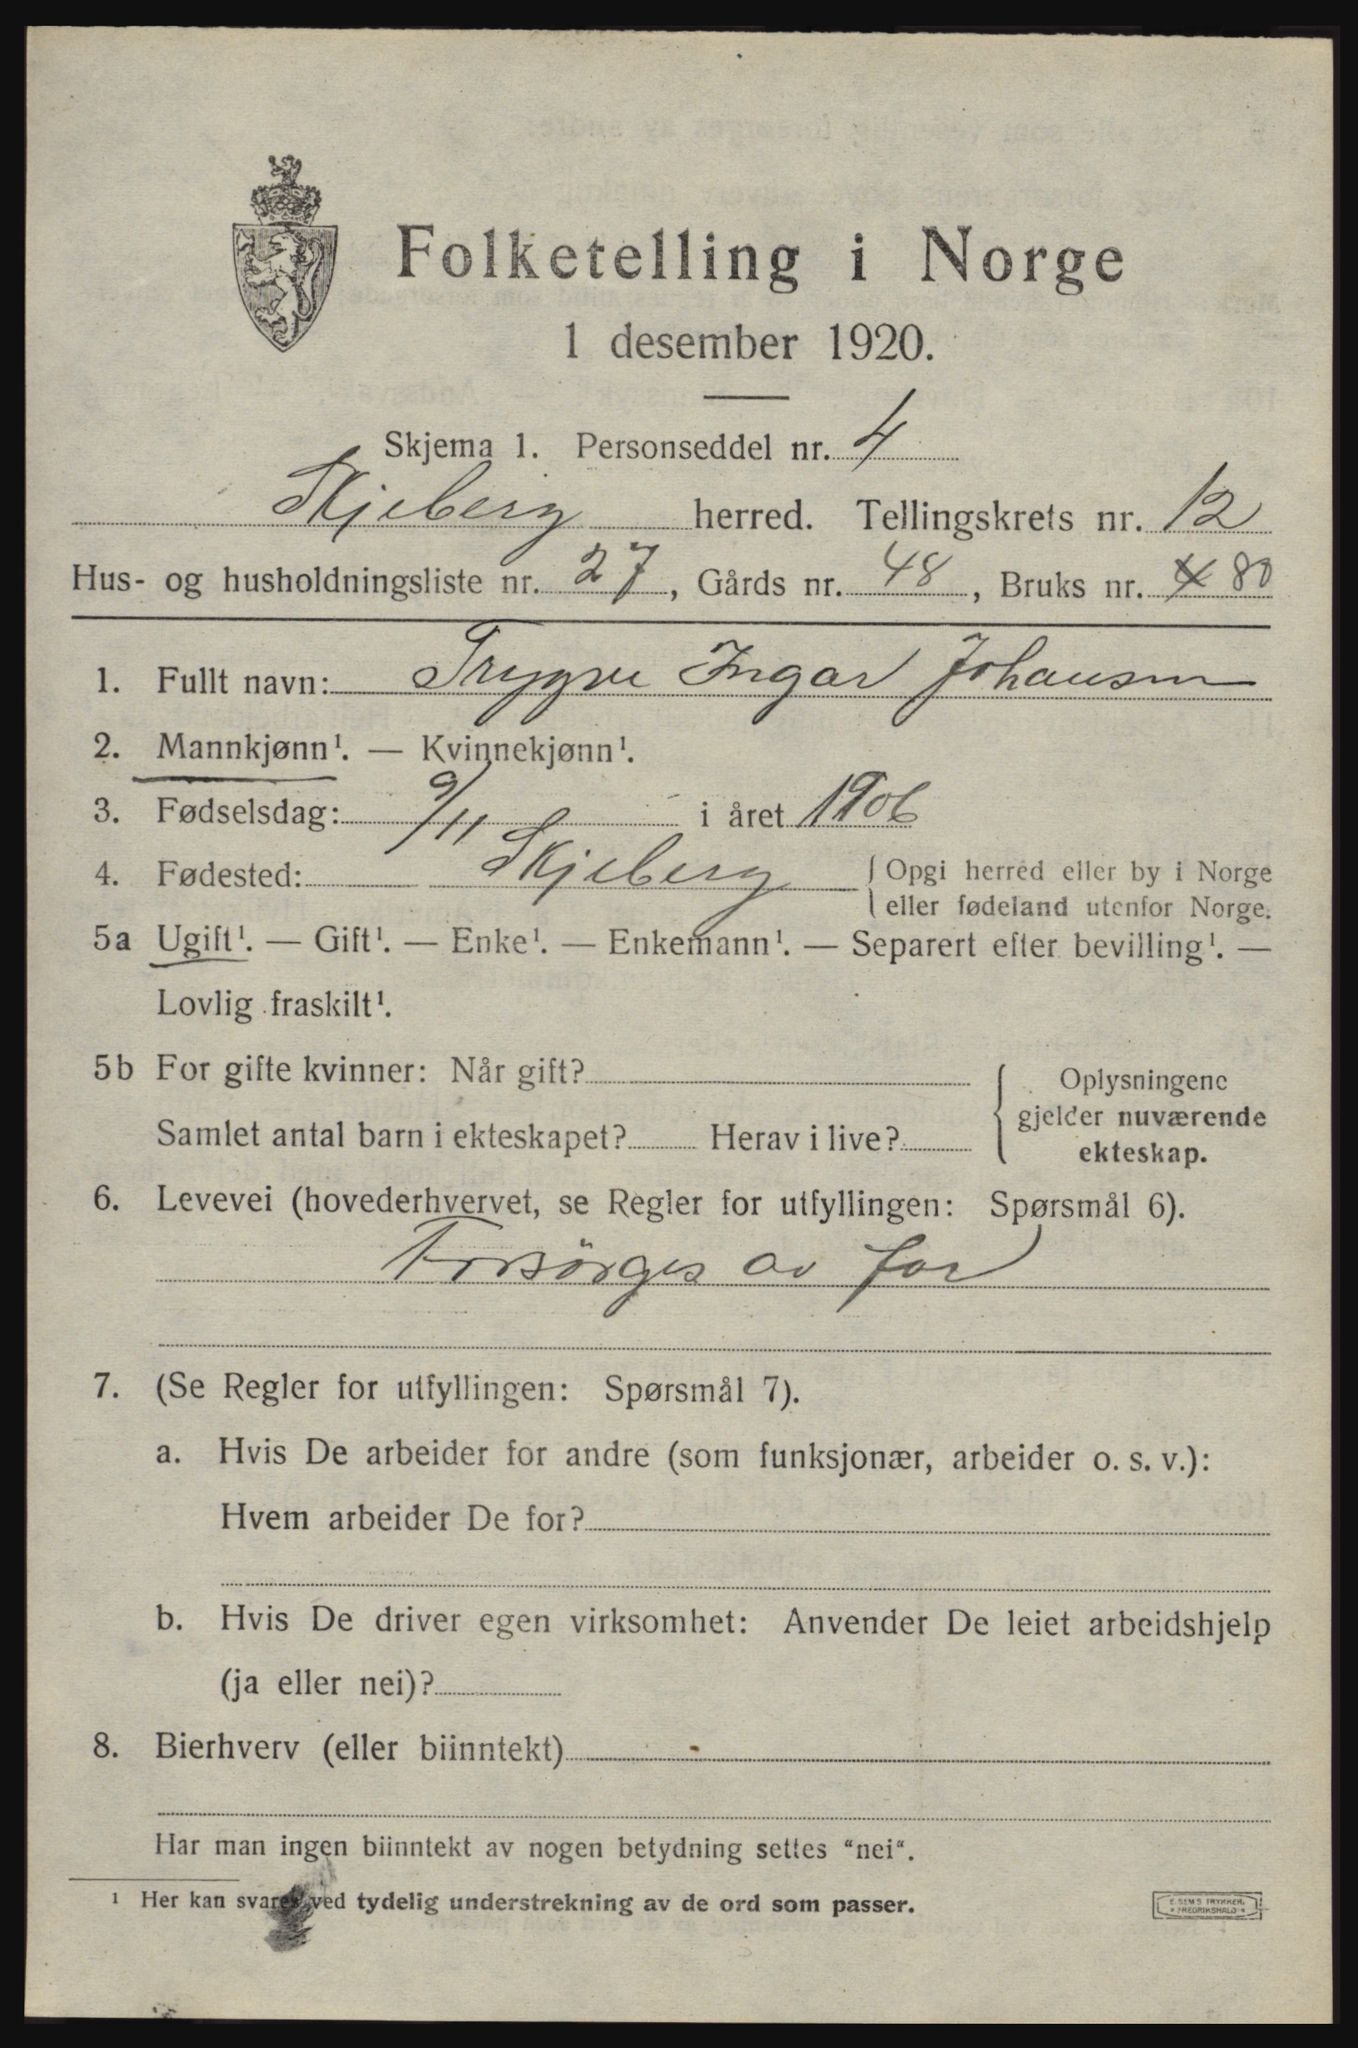 Folketelling i Norge
1 desember 1920.
Skjema 1. Personseddel nr. 4
Skjeberg herred. Tellingskrets nr. 12
Hus- og husholdningsliste nr. 27, Gårds nr. 48, Bruks nr. 4 80
1. Fullt navn: Trygve Ingar Johansen
2. Mannkjønn¹. — Kvinnekjønn¹.
3. Fødselsdag: 9/11 i året 1906
4. Fødested: Skjeberg { Opgi herred eller by i Norge
eller fødeland utenfor Norge.
5a Ugift¹. — Gift¹. — Enke¹. — Enkemann¹. — Separert efter bevilling¹. —
Lovlig fraskilt¹.
5b For gifte kvinner: Når gift? { Oplysningene
gjelder nuværende
Samlet antal barn i ekteskapet? Herav i live?
ekteskap.
6. Levevei (hovederhvervet, se Regler for utfyllingen: Spørsmål 6).
Forsørges av far
7. (Se Regler for utfyllingen: Spørsmål 7).
a. Hvis De arbeider for andre (som funksjonær, arbeider o. s. v.):
Hvem arbeider De for?
b. Hvis De driver egen virksomhet: Anvender De leiet arbeidshjelp
(ja eller nei)?
8. Bierhverv (eller biinntekt)
Har man ingen biinntekt av nogen betydning settes "nei".
¹ Her kan svares ved tydelig understrekning av de ord som passer.
E. SEMS TRYKKERI
FREDRIKSHALD